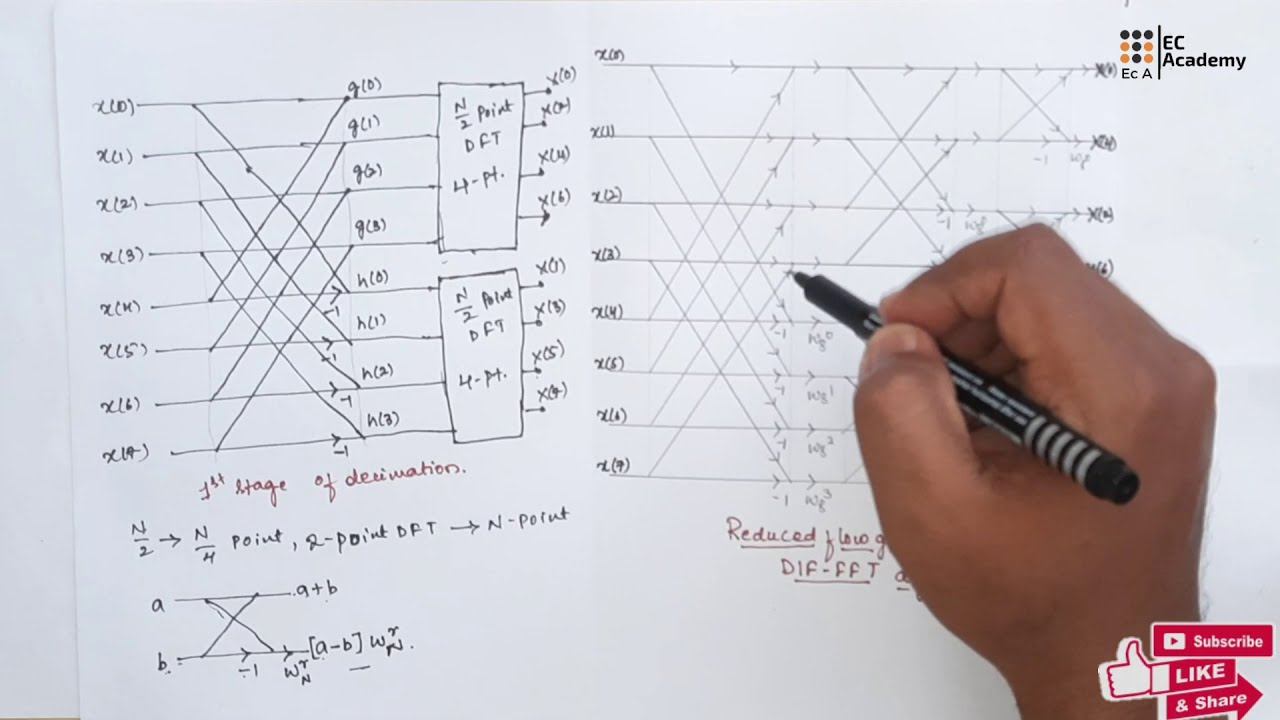 EC
Academy
Ec A
x(0)
g(0)
x(1)
g(1)
x(2)
g(2)
x(3)
g(3)
x(4)
h(0)
-1
x(5)
h(1)
-1
x(6)
h(2)
-1
x(7)
h(3)
-1
N/2 point
DFT
4-pt.
X(0)
X(2)
X(4)
X(6)
N/2 point
DFT
4-pt.
X(1)
X(3)
X(5)
X(7)
1st stage of decimation.
N/2 → N/4 point, 2-point DFT → N-point
a
a+b
b
-1
W_N^r
[a-b] W_N^r.
x(0)
x(1)
x(2)
x(3)
x(4)
x(5)
x(6)
x(7)
-1 W8^0
-1 W8^1
-1 W8^2
-1 W8^3
-1 W8^0
-1 W8^0
X(0)
X(4)
X(2)
Reduced flow g
DIF-FFT
Subscribe
LIKE
& Share